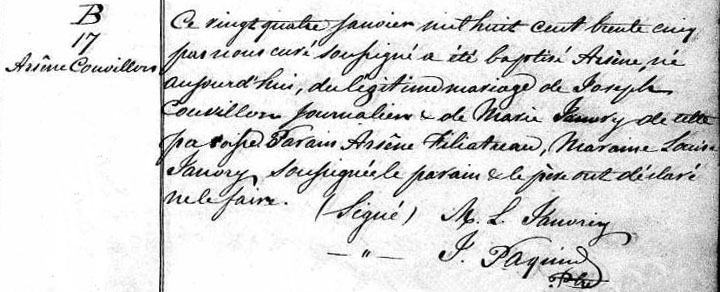 B
17
Arsène Couvillon
Ce vingt quatre Janvier mil huit cent trente cinq
par nous curé soussigné a été baptisé Arsène, né
aujourd'hui, du légitime mariage de Joseph
Couvillon journalier & de Marie Janvry de cette
paroisse Parain Arsène Filiatreau, Maraine Louise
Janvry soussignée le parain & le père ont déclaré
ne le faire. (Signé) M. L. Janvry
— " — J. Paquin
Ptre